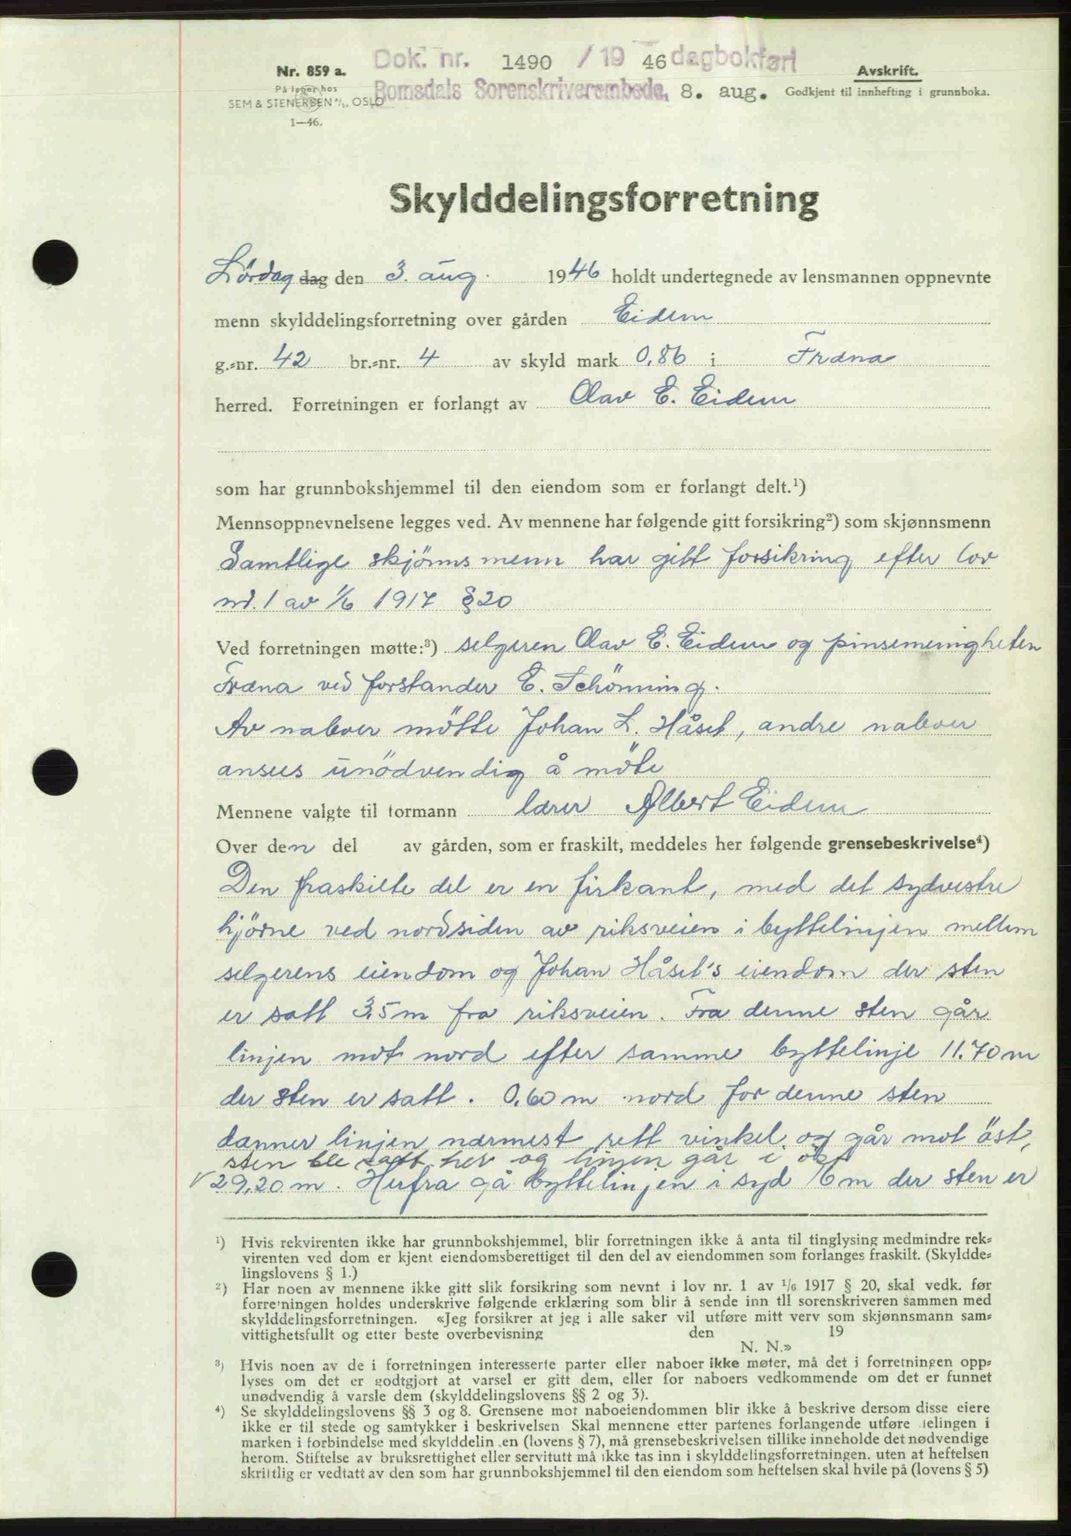 Dok. nr. 1490 / 19 46 dagbokført
Romsdals Sorenskriverembede, 8. aug.
Nr. 859 a.
På lager hos
SEM & STENERSEN A/S, OSLO
1—46.
Avskrift.
Godkjent til innhefting i grunnboka.
Skylddelingsforretning
Lördag dag den 3. aug. 1946 holdt undertegnede av lensmannen oppnevnte
menn skylddelingsforretning over gården Eidem
g.-nr. 42 br.-nr. 4 av skyld mark 0,86 i Fræna
herred. Forretningen er forlangt av Olav E. Eidem
som har grunnbokshjemmel til den eiendom som er forlangt delt.¹)
Mennsoppnevnelsene legges ved. Av mennene har følgende gitt forsikring²) som skjønnsmenn
Samtlige skjönnsmenn har gitt forsikring efter lov
nr. 1 av 1/6 1917 § 20
Ved forretningen møtte:³) selgeren Olav E. Eidem og pinsemenigheten
Fræna ved forstander E. Schönning.
Av naboer mötte Johan L. Håset, andre naboer
ansees unödvendig å möte
Mennene valgte til formann lærer Albert Eidem
Over den del av gården, som er fraskilt, meddeles her følgende grensebeskrivelse⁴)
Den fraskilte del er en firkant, med det sydvestre
hjörne ved nordsiden av riksveien i byttelinjen mellem
selgerens eiendom og Johan Håset's eiendom der sten
er satt 3,5 m fra riksveien. Fra denne sten går
linjen mot nord efter samme byttelinje 11.70 m
der sten er satt. 0,60 m nord for denne sten
danner linjen nærmest rett vinkel og går mot öst,
sten ble satt her og linjen går i öst
√ 29,20 m. Herfra gå byttelinjen i syd 16 m der sten er
¹) Hvis rekvirenten ikke har grunnbokshjemmel, blir forretningen ikke å anta til tinglysing medmindre rek-
virenten ved dom er kjent eiendomsberettiget til den del av eiendommen som forlanges fraskilt. (Skyldde-
lingslovens § 1.)
²) Har noen av mennene ikke gitt slik forsikring som nevnt i lov nr. 1 av ¹/₆ 1917 § 20, skal vedk. før
forretningen holdes underskrive følgende erklæring som blir å sende inn til sorenskriveren sammen med
skylddelingsforretningen. «Jeg forsikrer at jeg i alle saker vil utføre mitt verv som skjønnsmann sam-
vittighetsfullt og etter beste overbevisning den 19
N. N.»
³) Hvis noen av de i forretningen interesserte parter eller naboer ikke møter, må det i forretningen opp-
lyses om det er godtgjort at varsel er gitt dem, eller for naboers vedkommende om det er funnet
unødvendig å varsle dem (skylddelingslovens §§ 2 og 3).
⁴) Se skylddelingslovens §§ 3 og 8. Grensene mot naboeiendommen blir ikke å beskrive dersom disse eiere
ikke er til stede og samtykker i beskrivelsen Skal mennene etter partenes forlangende utføre delingen i
marken i forbindelse med skylddelingen (lovens § 7), må grensebeskrivelsen tillike inneholde det nødvendige
herom. Stiftelse av bruksrettighet eller servitutt må ikke tas inn i skylddelingsforretningen, uten at heftelsen
skriftlig er vedtatt av den som har grunnbokshjemmel til den eiendom som heftelsen skal hvile på (lovens § 5)